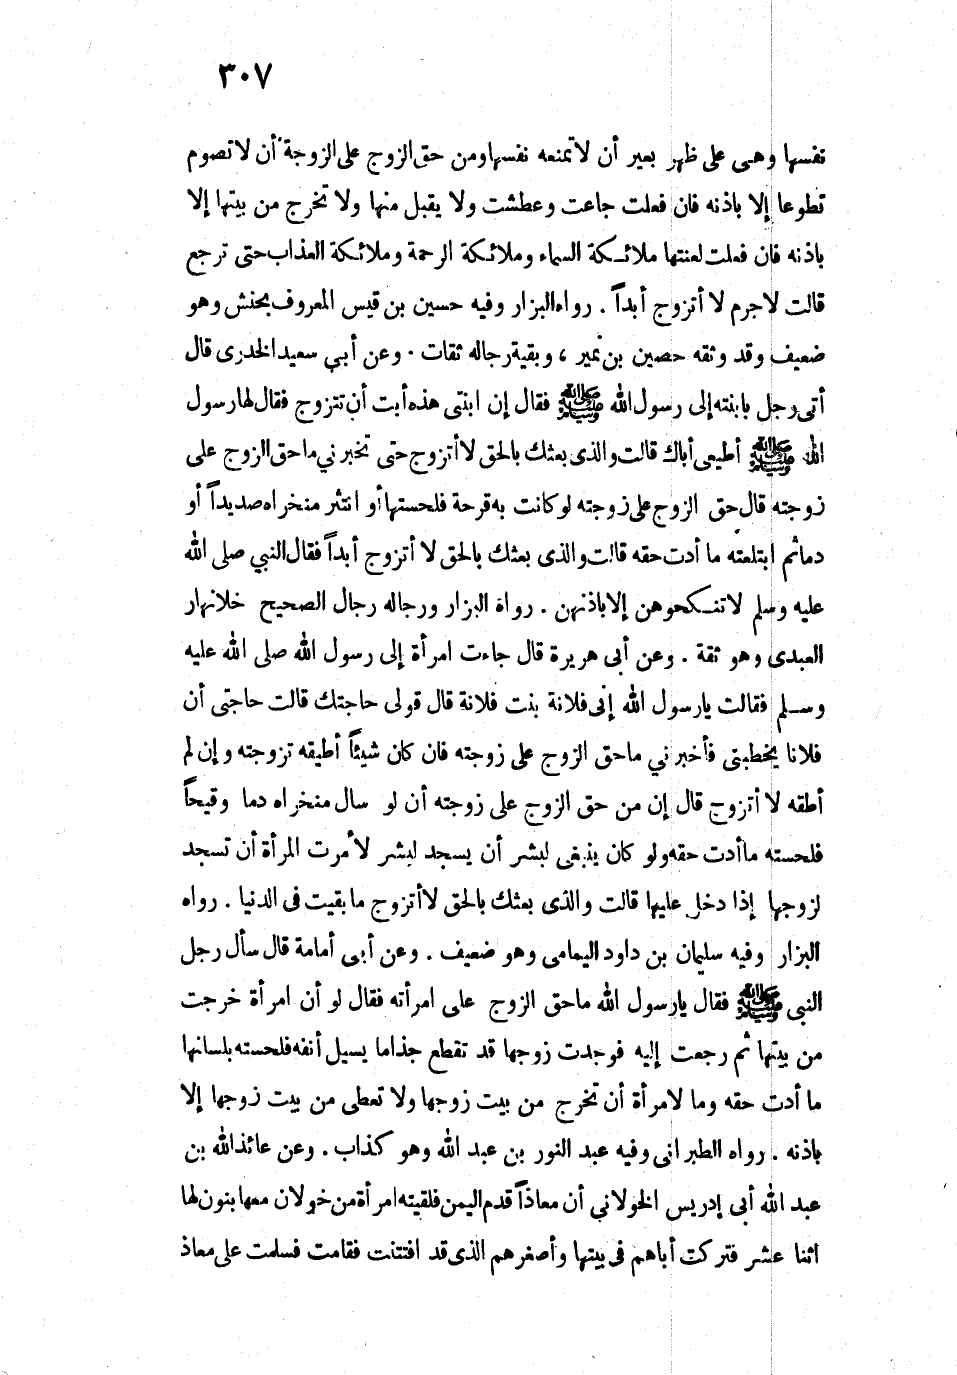 ٣٠٧
نفسها وهى على ظهر بعير أن لا تمنعه نفسها ومن حق الزوج على الزوجة أن لا تصوم
تطوعا إلا باذنه فان فعلت جاعت وعطشت ولا يقبل منها ولا تخرج من بيتها إلا
باذنه فان فعلت لعنتها ملائكة السماء وملائكة الرحمة وملائكة العذاب حتى ترجع
قالت لاجرم لا أتزوج أبداً . رواه البزار وفيه حسين بن قيس المعروف بحنش وهو
ضعيف وقد وثقه حصين بن نمير ، وبقية رجاله ثقات . وعن أبى سعيد الخدرى قال
أتى رجل بابنته إلى رسول الله ﷺ فقال إن ابنتى هذه أبت أن تتزوج فقال لها رسول
الله ﷺ أطيعى أباك قالت والذى بعثك بالحق لا أتزوج حتى تخبرني ما حق الزوج على
زوجته قال حق الزوج على زوجته لو كانت به قرحة فلحستها أو انتثر منخراه صديداً أو
دما ثم ابتلعته ما أدت حقه قالت والذى بعثك بالحق لا أتزوج أبداً فقال النبي صلى الله
عليه وسلم لا تنكحوهن إلا باذنهن . رواه البزار ورجاله رجال الصحيح خلا نهار
العبدى وهو ثقة . وعن أبى هريرة قال جاءت امرأة إلى رسول الله صلى الله عليه
وسلم فقالت يارسول الله إنى فلانة بنت فلانة قال قولى حاجتك قالت حاجتى أن
فلانا يخطبنى فأخبرني ما حق الزوج على زوجته فان كان شيئاً أطيقه تزوجته وإن لم
أطقه لا أتزوج قال إن من حق الزوج على زوجته أن لو سال منخراه دما وقيحاً
فلحسته ما أدت حقه ولو كان ينبغى لبشر أن يسجد لبشر لأمرت المرأة أن تسجد
لزوجها إذا دخل عليها قالت والذى بعثك بالحق لا أتزوج ما بقيت فى الدنيا . رواه
البزار وفيه سليمان بن داود اليمامى وهو ضعيف . وعن أبى أمامة قال سأل رجل
النبى ﷺ فقال يارسول الله ماحق الزوج على امرأته فقال لو أن امرأة خرجت
من بيتها ثم رجعت إليه فوجدت زوجها قد تقطع جذاما يسيل أنفه فلحسته بلسانها
ما أدت حقه وما لامرأة أن تخرج من بيت زوجها ولا تعطى من بيت زوجها إلا
باذنه . رواه الطبرانى وفيه عبد النور بن عبد الله وهو كذاب . وعن عائذ الله بن
عبد الله أبى إدريس الخولاني أن معاذاً قدم اليمن فلقيته امرأة من خولان معها بنون لها
اثنا عشر فتركت أباهم فى بيتها وأصغرهم الذى قد افتتنت فقامت فسلمت على معاذ